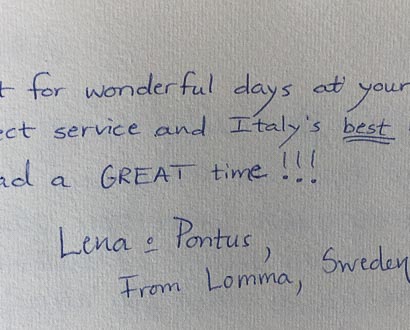 t for wonderful days at your
ect service and Italy's best
ad a GREAT time!!!
Lena o Pontus,
From Lomma, Sweden